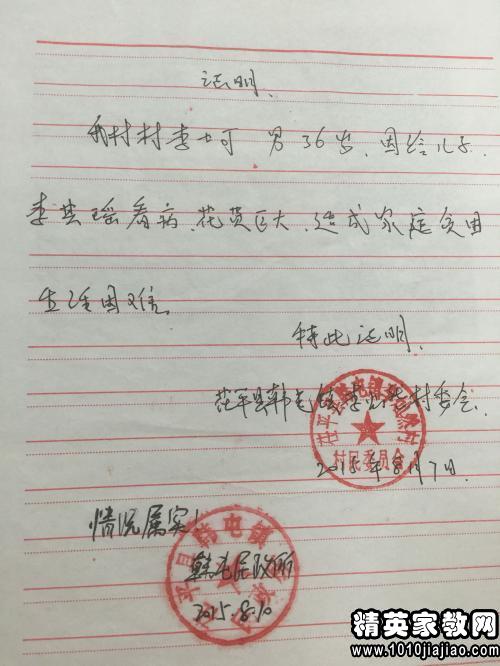 证明
我村村李士可 男36岁,因给儿子
李其瑶看病,花费巨大,造成家庭
生活困难。
特此证明
茌平县韩屯镇李 村委会
村民委员会
2015年8月7日
情况属实
韩屯民政所
2015.8.10
精英家教网
www.1010jiajiao.com